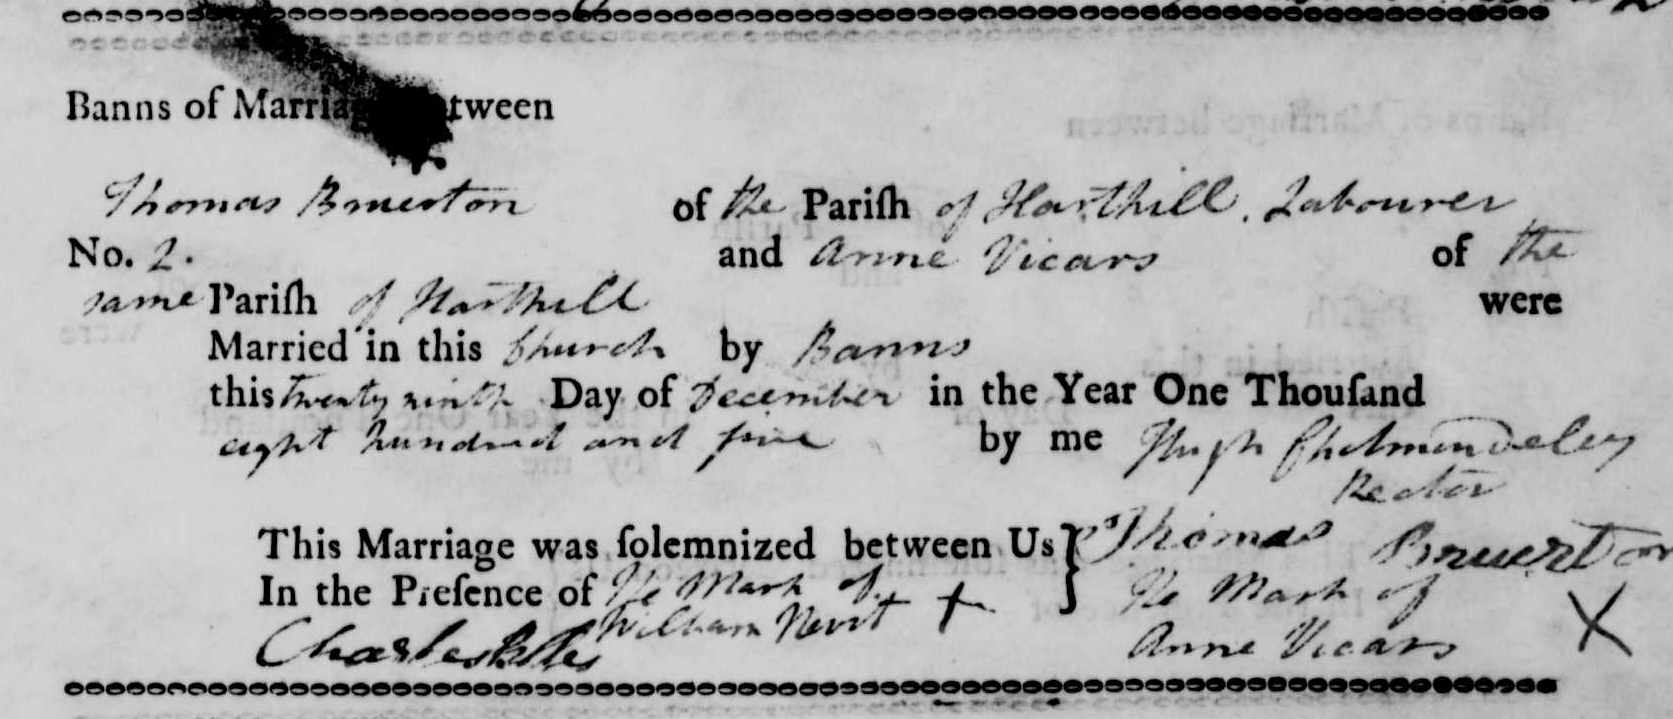 Banns of Marriage between
Thomas Bruerton of the Pariſh of Harthill, Labourer
No. 2. and Anne Vicars of the
same Pariſh of Harthill were
Married in this Church by Banns
this twenty ninth Day of December in the Year One Thouſand
eight hundred and five by me Hugh Cholmondeley
Rector
This Marriage was ſolemnized between Us } Thomas Bruerton
In the Preſence of The Mark of + The Mark of X
William
Charles Anne Vicars